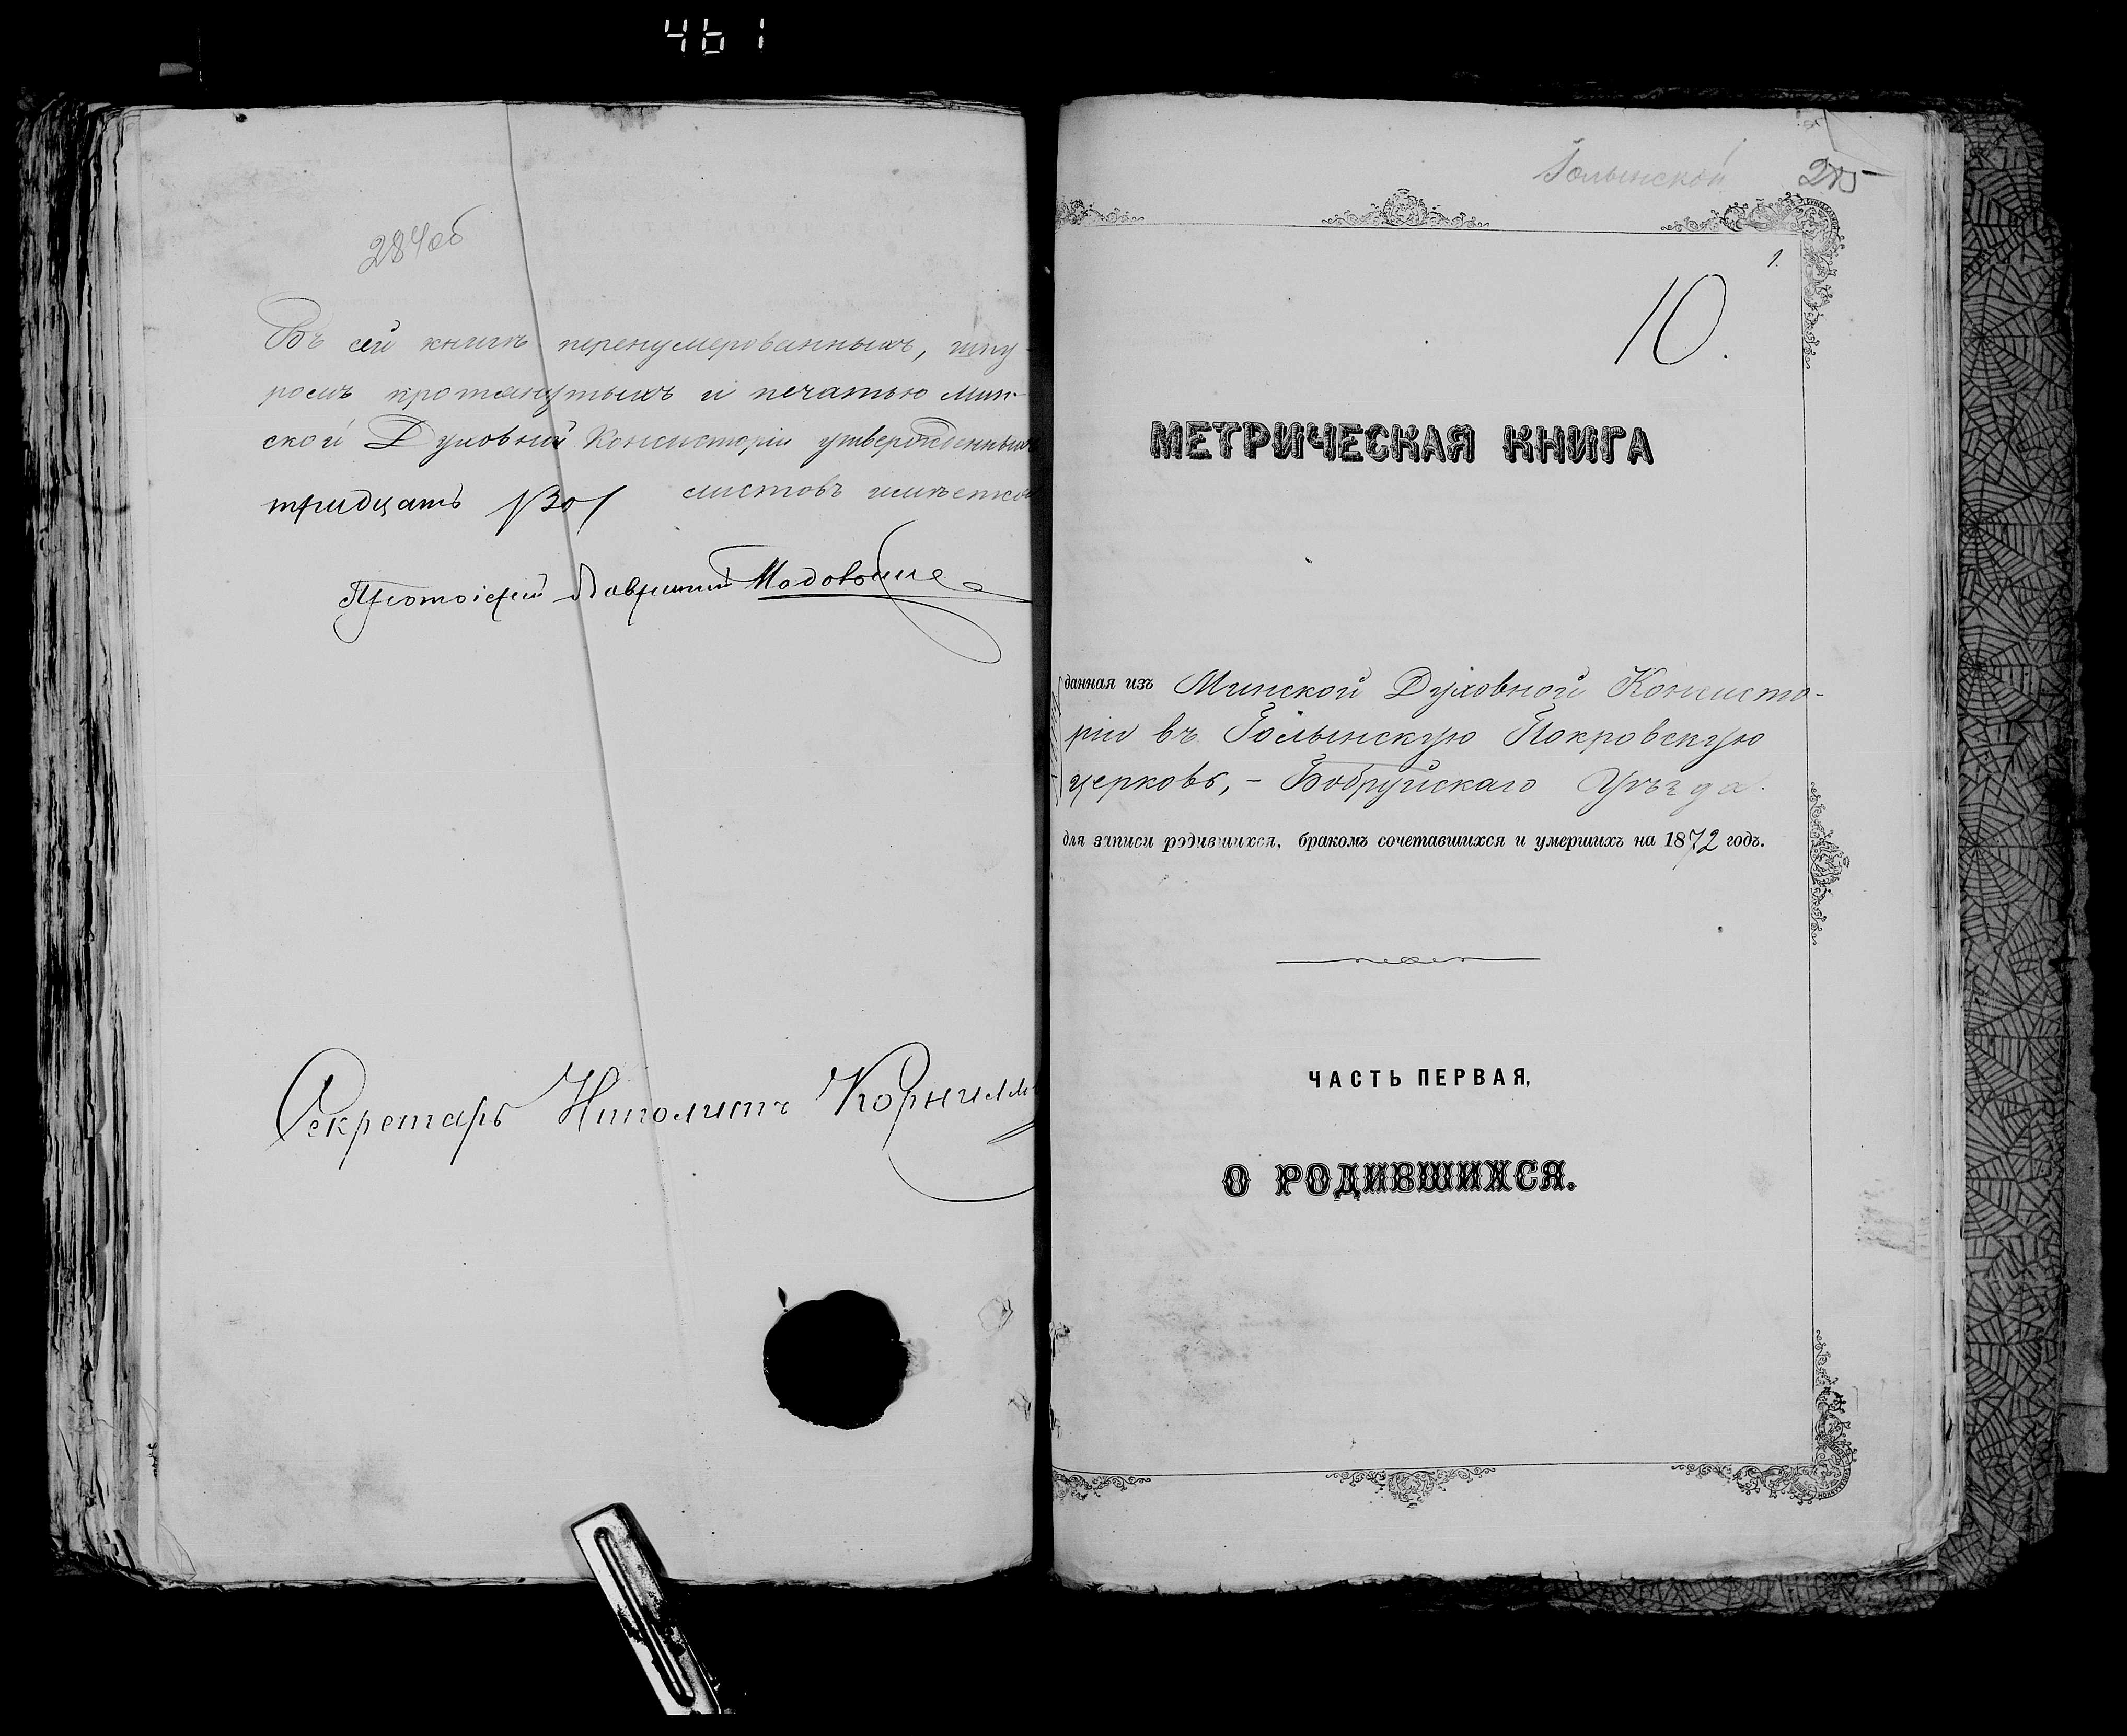 461
284об
Въ сей книгѣ перенумерованныхъ, шну-
ромъ протянутыхъ и печатью Мин-
ской Духовной Консисторіи утвержденныхъ
тридцать /30/ листовъ имѣется
Протоіерей
Секретарь Ипполитъ
Голынской 285
1.
10.
МЕТРИЧЕСКАЯ КНИГА
данная изъ Минской Духовной Консисто-
ріи въ Голынскую Покровскую
церковь, - Бобруйскаго Уѣзда.
для записи родившихся, бракомъ сочетавшихся и умершихъ на 1872 годъ.
ЧАСТЬ ПЕРВАЯ,
О РОДИВШИХСЯ.